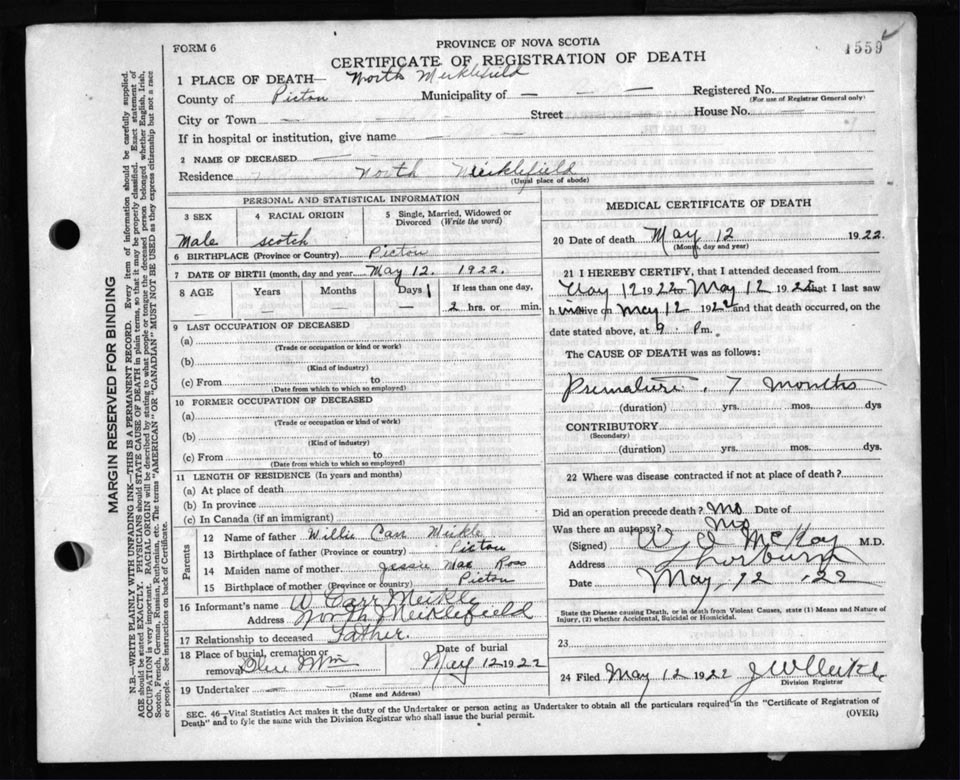 1559
FORM 6
PROVINCE OF NOVA SCOTIA
CERTIFICATE OF REGISTRATION OF DEATH
1 PLACE OF DEATH— North Meiklefield
County of Pictou Municipality of — Registered No.
(For use of Registrar General only)
City or Town — Street House No. —
If in hospital or institution, give name —
2 NAME OF DECEASED —
Residence North Meiklefield
(Usual place of abode)
PERSONAL AND STATISTICAL INFORMATION
3 SEX 4 RACIAL ORIGIN 5 Single, Married, Widowed or Divorced (Write the word)
Male Scotch
6 BIRTHPLACE (Province or Country) Pictou
7 DATE OF BIRTH (month, day and year) May 12. 1922.
8 AGE Years Months Days 1 If less than one day,
— — 2 hrs. or min.
9 LAST OCCUPATION OF DECEASED
(a)
(Trade or occupation or kind or work)
(b)
(Kind of industry)
(c) From to
(Date from which to which so employed)
10 FORMER OCCUPATION OF DECEASED
(a)
(Trade or occupation or kind of work)
(b)
(Kind of industry)
(c) From to
(Date from which to which so employed)
11 LENGTH OF RESIDENCE (In years and months)
(a) At place of death
(b) In province
(c) In Canada (if an immigrant)
Parents
12 Name of father Willie Carr Meikle
13 Birthplace of father (Province or country) Pictou
14 Maiden name of mother Jessie Mae Ross
15 Birthplace of mother (Province or country) Pictou
16 Informant's name W Carr Meikle
Address North Meiklefield
17 Relationship to deceased Father.
18 Place of burial, cremation or removal Date of burial
May 12 1922
19 Undertaker —
(Name and Address)
MEDICAL CERTIFICATE OF DEATH
20 Date of death May 12 1922.
(Month, day and year)
21 I HEREBY CERTIFY, that I attended deceased from
May 12 1922 to May 12 1922 that I last saw
him alive on May 12 1922 and that death occurred, on the
date stated above, at 9. Pm.
The CAUSE OF DEATH was as follows:
Premature. 7 months
(duration) yrs. mos. dys
CONTRIBUTORY
(Secondary)
(duration) yrs. mos. dys.
22 Where was disease contracted if not at place of death?
Did an operation precede death? No Date of
Was there an autopsy? No
(Signed) McKay M.D.
Address Thorburn
Date May 12 22
State the Disease causing Death, or in death from Violent Causes, state (1) Means and Nature of
Injury, (2) whether Accidental, Suicidal or Homicidal.
23
24 Filed May 12 1922 J W Meikle
Division Registrar
SEC. 46—Vital Statistics Act makes it the duty of the Undertaker or person acting as Undertaker to obtain all the particulars required in the "Certificate of Registration of
Death" and to fyle the same with the Division Registrar who shall issue the burial permit.
(OVER)
MARGIN RESERVED FOR BINDING
N.B.—WRITE PLAINLY WITH UNFADING INK—THIS IS A PERMANENT RECORD. Every item of information should be carefully supplied.
AGE should be stated EXACTLY. PHYSICIANS should STATE CAUSE OF DEATH in plain terms, so that it may be properly classified. Exact statement of
OCCUPATION is very important. RACIAL ORIGIN will be described by stating to what people or tongue the deceased person belonged whether English, Irish,
Scotch, French, German, Russian, Ruthenian, etc. The terms "AMERICAN" OR "CANADIAN" MUST NOT BE USED as they express citizenship but not a race
or people. See instructions on back of Certificate.